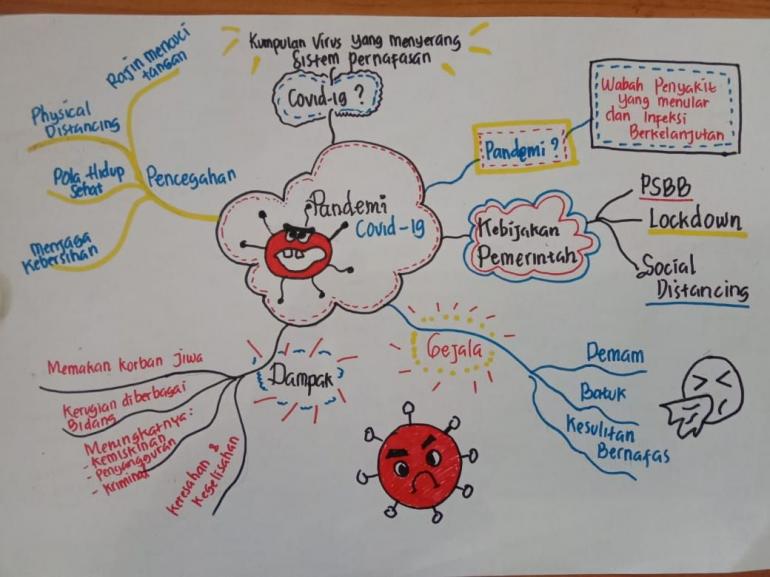 Kumpulan Virus yang menyerang
Sistem pernafasan
Covid-19 ?
Rajin mencuci
tangan
Physical
Distancing
Pola Hidup
Sehat
Menjaga
Kebersihan
Pencegahan
Pandemi
Covid-19
Pandemi ?
Wabah Penyakit
yang menular
dan Infeksi
Berkelanjutan
Kebijakan
Pemerintah
PSBB
Lockdown
Social
Distancing
Gejala
Demam
Batuk
Kesulitan
Bernafas
Dampak
Memakan korban jiwa
Kerugian diberbagai
Bidang
Meningkatnya:
- Kemiskinan
- Pengangguran
- Kriminal
Keresahan &
Kegelisahan